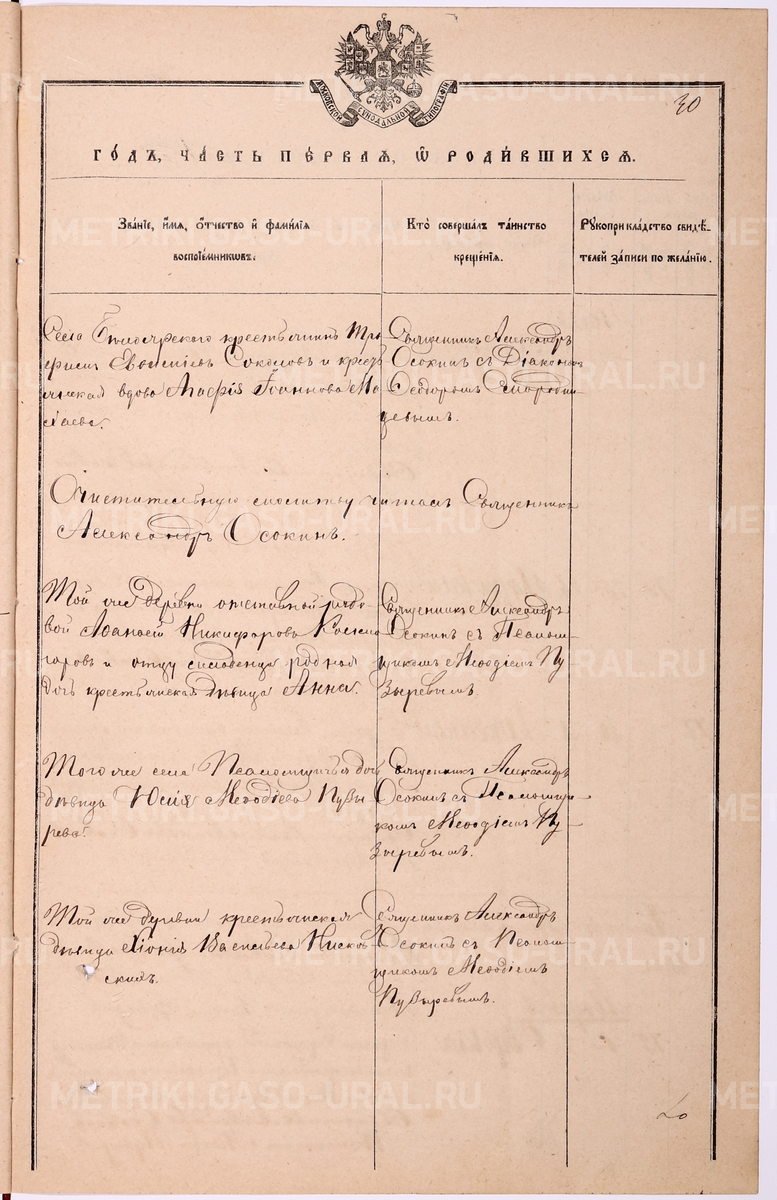 METRIKI.GASO-URAL.RU
МОСКОВСКОЙ СѴНОДАЛЬНОЙ ТИПОГРАФІИ
30
ГОДЪ, ЧАСТЬ ПЕРВАЯ, Ѿ РОДИВШИХСЯ.
Званіе, имя, отчество и фамилія
воспріемниковъ.
Кто совершалъ таинство
крещенія.
Рукоприкладство свидѣ-
телей записи по желанію.
Села крестьянинъ Тро
фимъ Евсевіевъ Соколовъ и кресть
янская вдова Іоаннова Ма
каева.
Священникъ Александръ
Осокинъ съ Діакономъ
Ѳеодоромъ
Очистительную молитву читалъ Священникъ
Александръ Осокинъ.
Той же деревни отставной рядо
вой Аѳанасій Никифоровъ
и отцу младенца родная
дочь крестьянская дѣвица Анна.
Священникъ Александръ
Осокинъ съ Псалом-
щикомъ Меѳодіемъ Пу
зыревымъ.
Того же села Псаломщичья дочь
дѣвица Юлія Меѳодіева Пузы
рева.
Священникъ Александръ
Осокинъ съ Псаломщи-
комъ Меѳодіемъ Пу-
зыревымъ.
Той же деревни крестьянская
дѣвица Хіонія Васильева Писков
скихъ.
Священникъ Александръ
Осокинъ съ Псалом-
щикомъ Меѳодіемъ
Пузыревымъ.